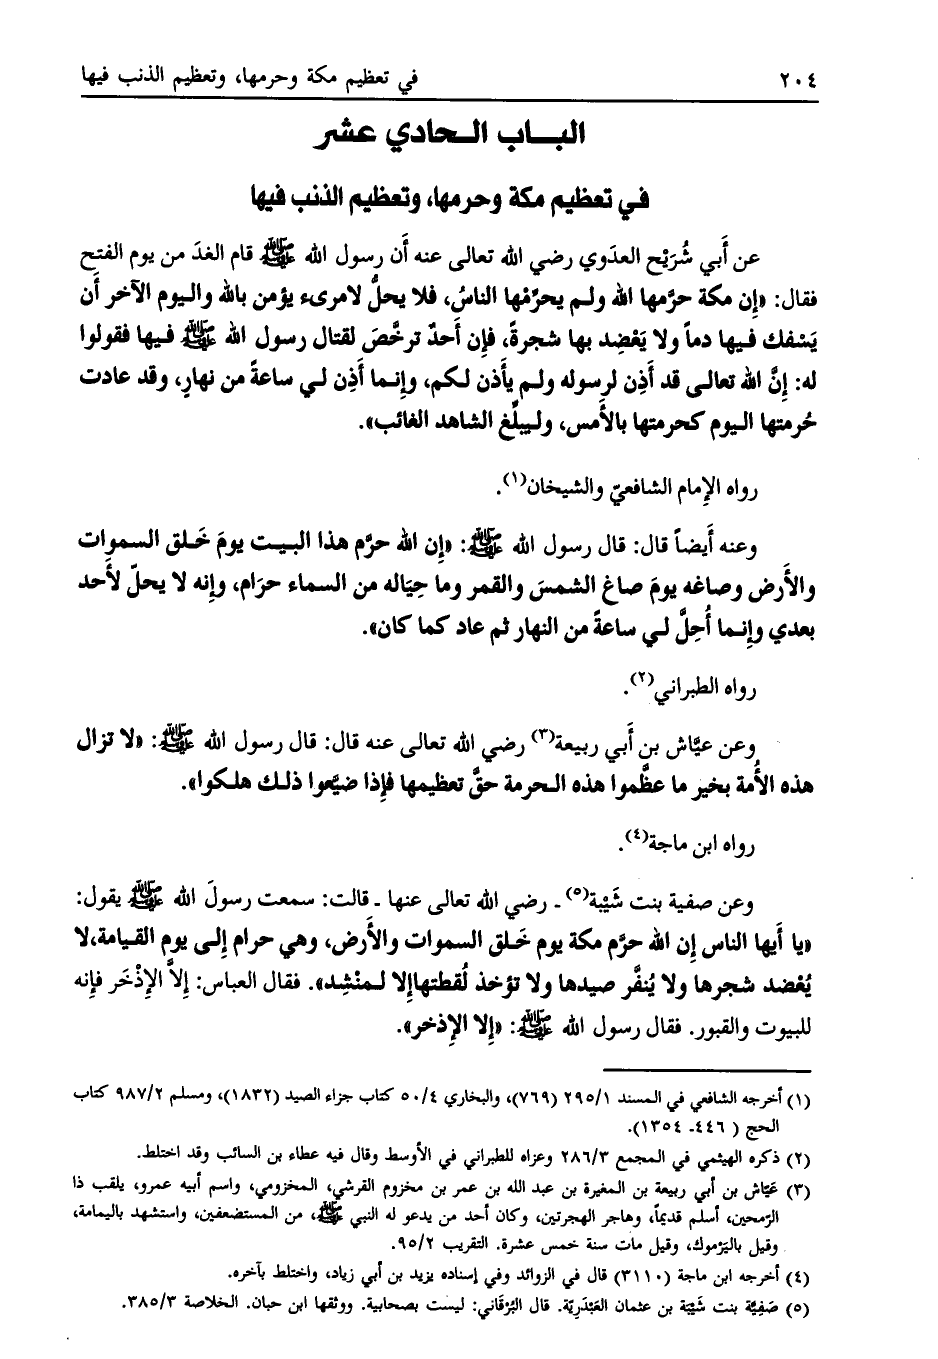 ٢٠٤ في تعظيم مكة وحرمها، وتعظيم الذنب فيها
البـاب الـحادي عشر
فـي تعظيم مكة وحرمها، وتعظيم الذنب فيها
عن أَبي شُرَيْح العدَوي رضي الله تعالى عنه أَن رسول الله ﷺ قام الغدَ من يوم الفتح
فقال: «إن مكة حرَّمها الله ولـم يحرِّمْها الناسُ، فلا يحلُّ لامرىء يؤمن بالله والـيوم الآخر أَن
يَسْفك فـيها دماً ولا يَعْضِد بها شجرةً، فإن أَحدٌ ترخَّصَ لقتال رسول الله ﷺ فـيها فقولوا
له: إنَّ الله تعالـى قد أَذِن لرسوله ولـم يأْذن لكم، وإنـما أَذِن لـي ساعةً من نهارٍ، وقد عادت
حُرمتها الـيوم كحرمتها بالأَمس، ولـيبلِّغ الشاهد الغائب».
رواه الإمام الشافعيّ والشيخان(١).
وعنه أَيضاً قال: قال رسول الله ﷺ: «إن الله حرَّم هذا البـيت يومَ خَـلق السموات
والأَرض وصاغه يومَ صاغ الشمسَ والقمر وما حِيَاله من السماء حرَام، وإنه لا يحلّ لأحد
بعدي وإنـما أُحِلَّ لـي ساعةً من النهار ثم عاد كما كان».
رواه الطبراني(٢).
وعن عيَّاش بن أَبي ربيعة(٣) رضي الله تعالى عنه قال: قال رسول الله ﷺ: «لا تزال
هذه الأُمة بخير ما عظَّموا هذه الـحرمة حقَّ تعظيمها فإِذا ضيَّعوا ذلـك هلكوا».
رواه ابن ماجة(٤).
وعن صفية بنت شَيْبة(٥) ـ رضي الله تعالى عنها ـ قالت: سمعت رسولَ الله ﷺ يقول:
«يا أَيها الناس إن الله حرَّم مكة يوم خَـلق السموات والأَرض، وهي حرام إلـى يوم القـيامة،لا
يُعْضد شجرها ولا يُنفَّر صيدها ولا تؤخذ لُقطتها إلا لـمنْشِد». فقال العباس: إلاَّ الإِذْخَر فإنه
للبيوت والقبور. فقال رسول الله ﷺ: «إلا الإذخر».
(١) أخرجه الشافعي في المسند ٢٩٥/١ (٧٦٩)، والبخاري ٥٠/٤ كتاب جزاء الصيد (١٨٣٢)، ومسلم ٩٨٧/٢ كتاب
الحج ( ٤٤٦ـ ١٣٥٤).
(٢) ذكره الهيثمي في المجمع ٢٨٦/٣ وعزاه للطبراني في الأوسط وقال فيه عطاء بن السائب وقد اختلط.
(٣) عَيّاش بن أبي ربيعة بن المغيرة بن عبد الله بن عمر بن مخزوم القرشي، المخزومي، واسم أبيه عمرو، يلقب ذا
الرّمحين، أسلم قديماً، وهاجر الهجرتين، وكان أحد من يدعو له النبي ﷺ، من المستضعفين، واستشهد باليمامة،
وقيل باليَرْموك، وقيل مات سنة خمس عشرة. التقريب ٩٥/٢.
(٤) أخرجه ابن ماجة (٣١١٠) قال في الزوائد وفي إسناده يزيد بن أبي زياد، واختلط بآخره.
(٥) صَفِيَّة بنت شَيْبَة بن عثمان العَبْدَرِيّة. قال البُرْقاني: ليست بصحابية. ووثقها ابن حبان. الخلاصة ٣٨٥/٣.